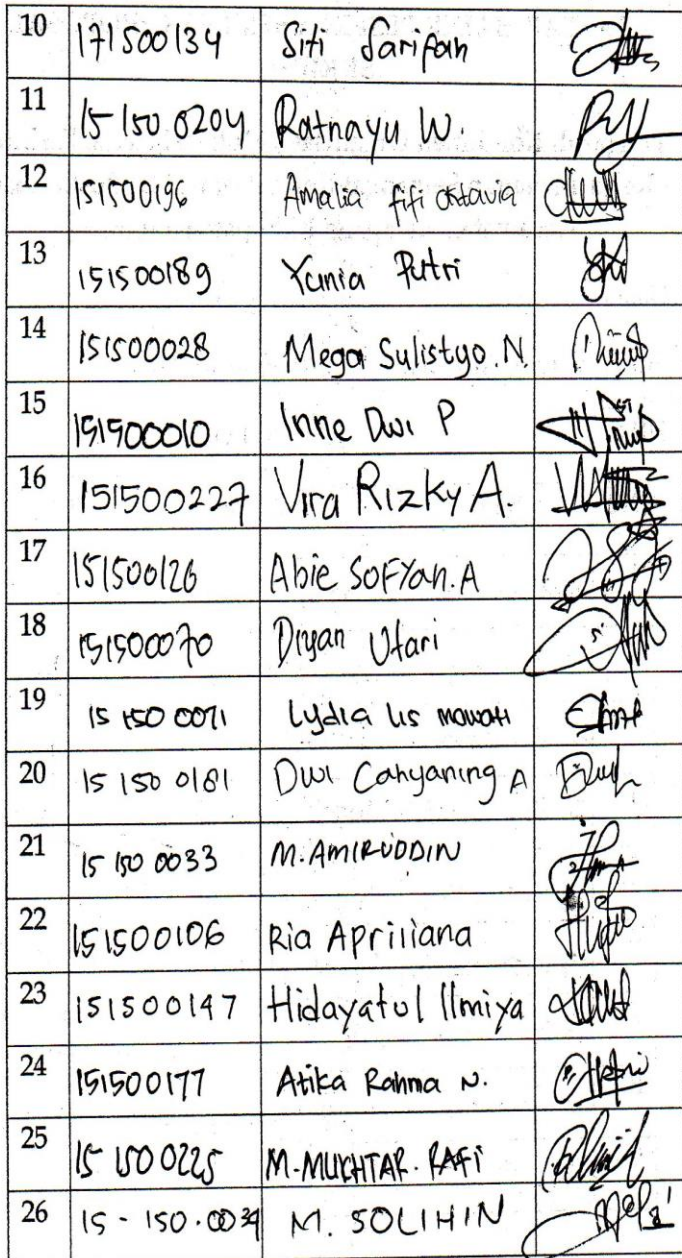 10 171500134 Siti Sarifah
11 15 150 0204 Ratnayu W.
12 151500196 Amalia fifi oktavia
13 151500189 Yunia Putri
14 151500028 Mega Sulistyo. N.
15 151500010 Inne Dwi P
16 151500227 Vira Rizky A.
17 151500126 Abie SOFYan. A
18 151500070 Diyan Utari
19 15 150 0071 Lydia lis mawati
20 15 150 0181 Dwi Cahyaning A
21 15 150 0033 M. AMIRUDDIN
22 151500106 Ria Apriliana
23 151500147 Hidayatul Ilmiya
24 151500177 Atika Rahma N.
25 15 1500225 M. MUKHTAR. RAFi
26 15 - 150 . 0034 M. SOLIHIN